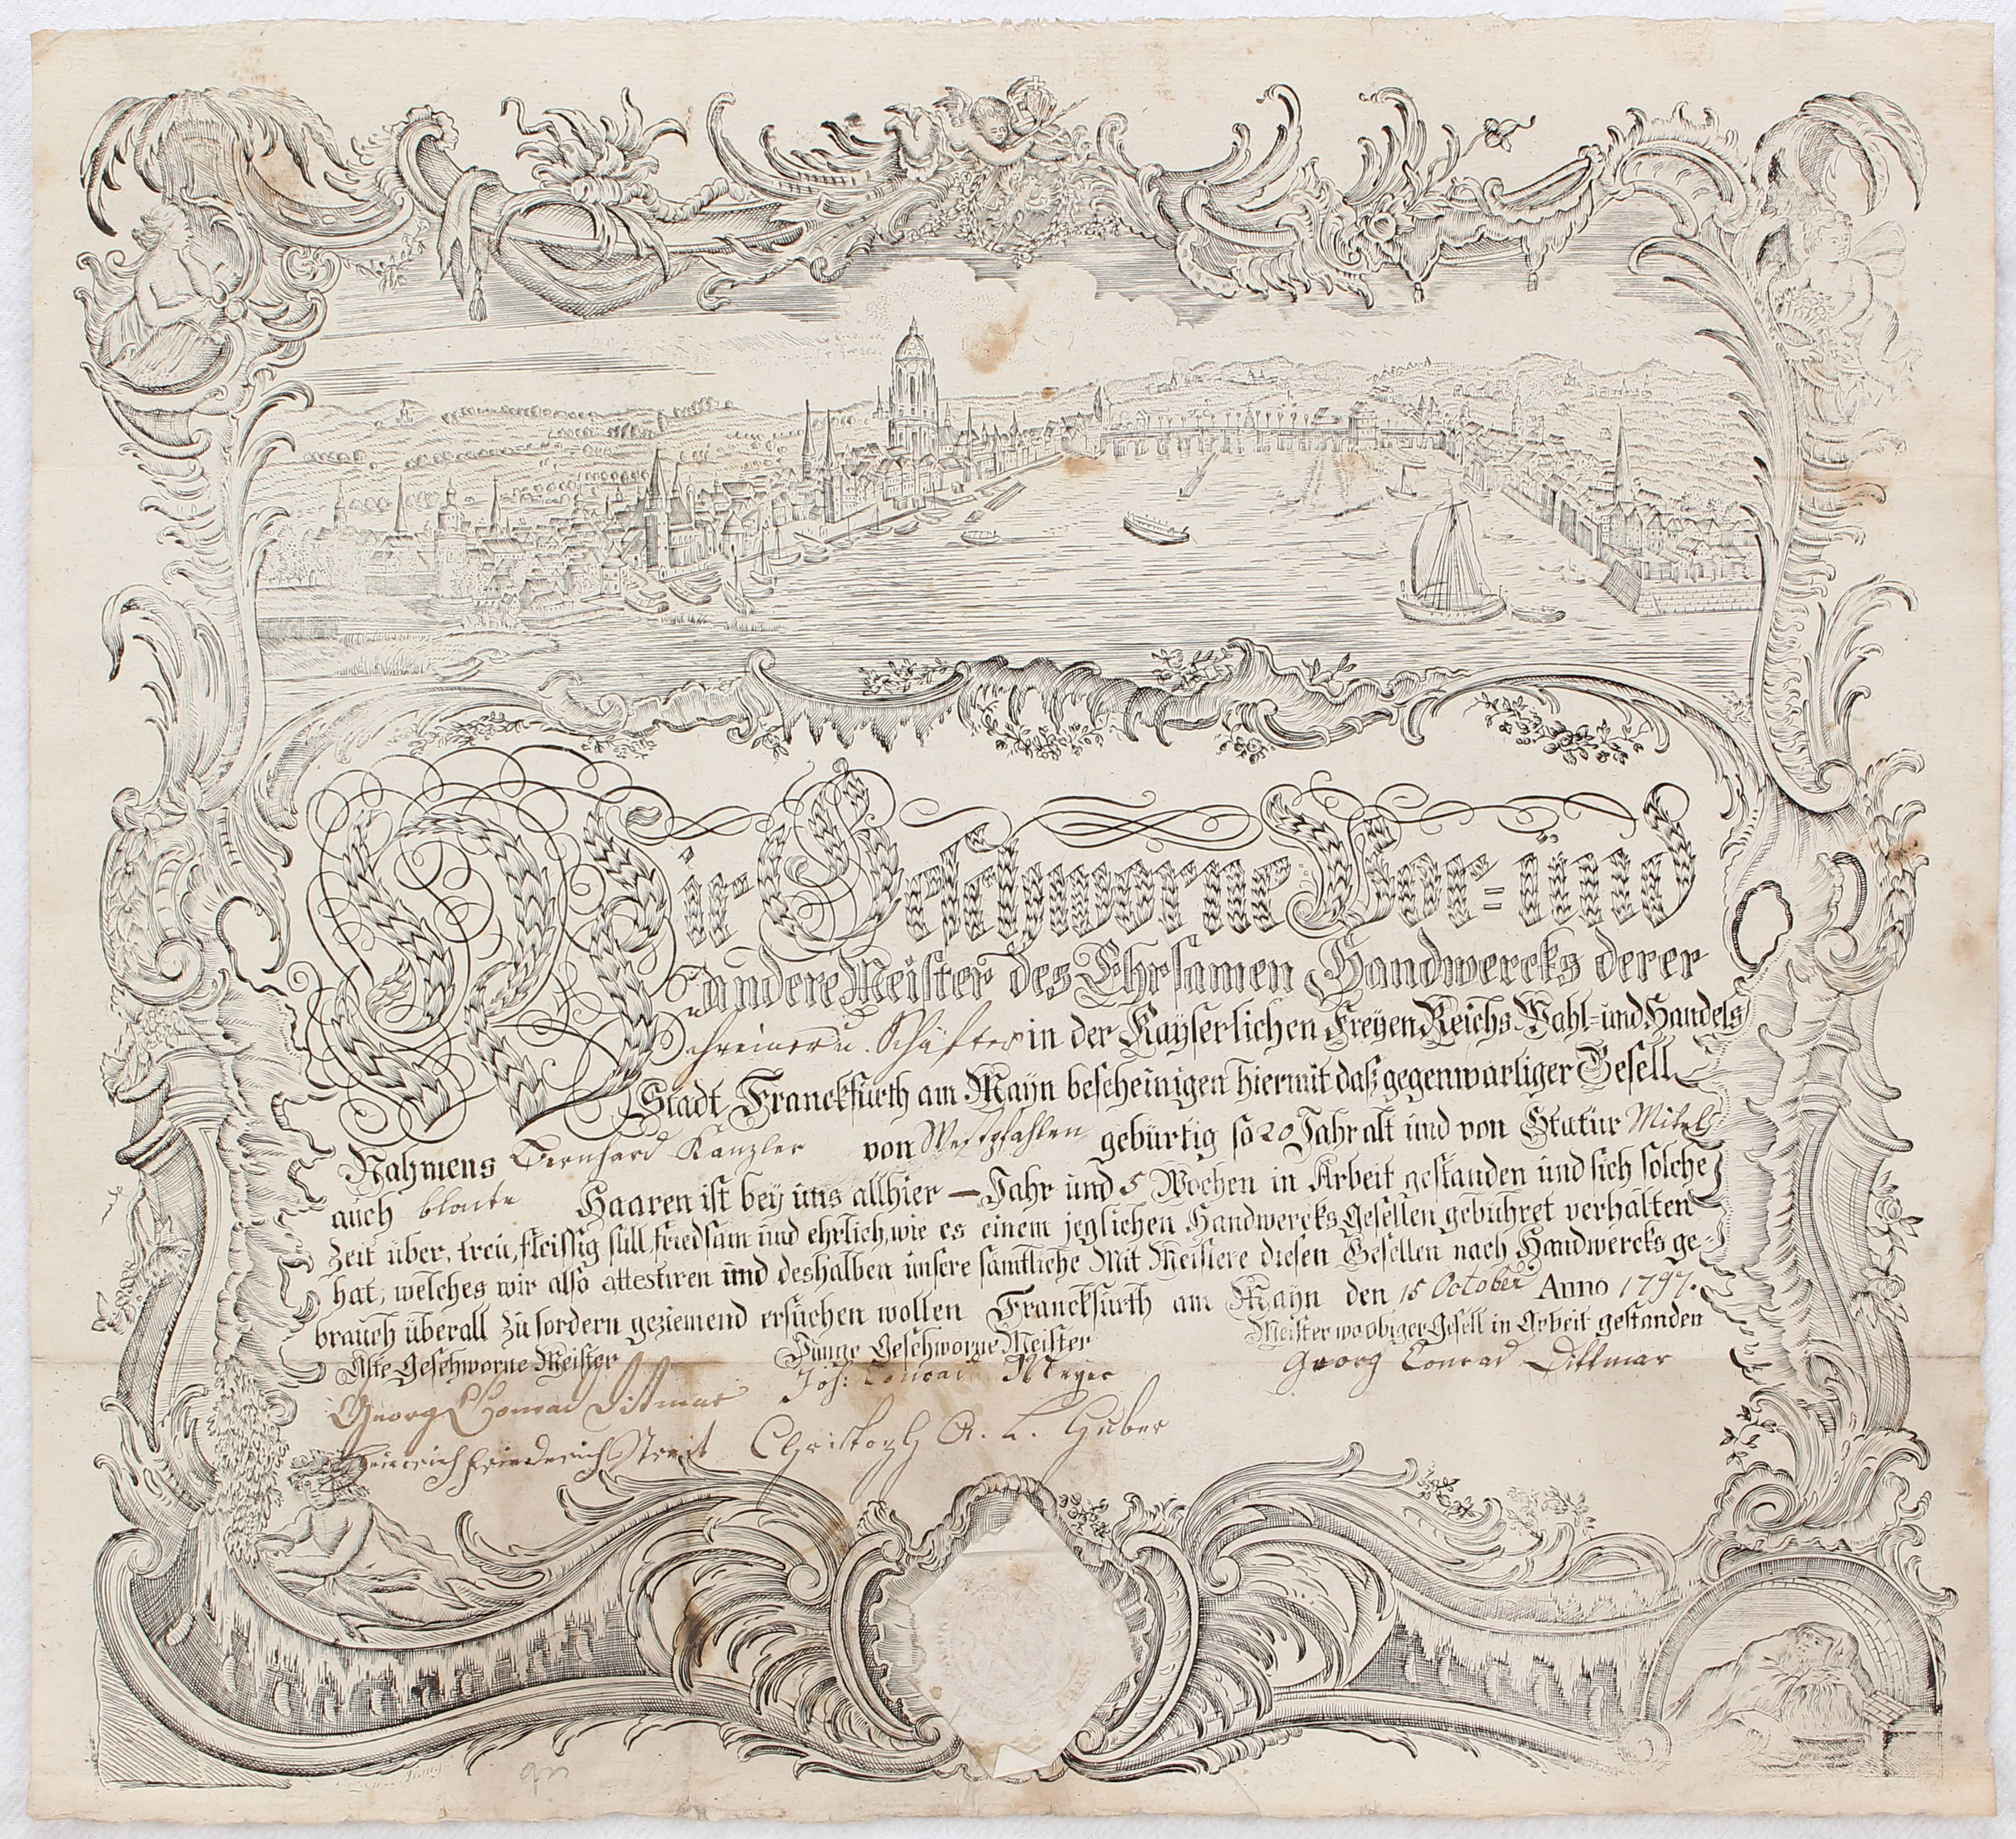 Wir Geschworne Vor= und
andere Meister des Ehrsamen Handwercks derer
Schreiner u. Schäfter in der Kayserlichen Freyen Reichs Wahl= und Handels
Stadt Franckfurth am Mayn bescheinigen hiermit daß gegenwärtiger Gesell
Nahmens Bernhard Kanzler von Westpfahlen gebürtig so 20 Jahr alt und von Statur Mitel
auch blonte Haaren ist bey uns allhier — Jahr und 5 Wochen in Arbeit gestanden und sich solche
Zeit über, treu, fleissig still, friedsam und ehrlich, wie es einem jeglichen Handwercks Gesellen gebühret verhalten
hat; welches wir also attestiren und deshalben unsere sämtliche Mit Meistere diesen Gesellen nach Handwercks ge=
brauch überall zu fordern geziemend ersuchen wollen Franckfurth am Mayn den 15 October Anno 1797.
Alte Geschworne Meister Junge Geschworne Meister Meister wo obiger Gesell in Arbeit gestanden
Georg Conrad Dittmar Joh: Conrad Meyer Georg Conrad Dittmar
Heinrich Friederich Streit Christoph A. L. Huber